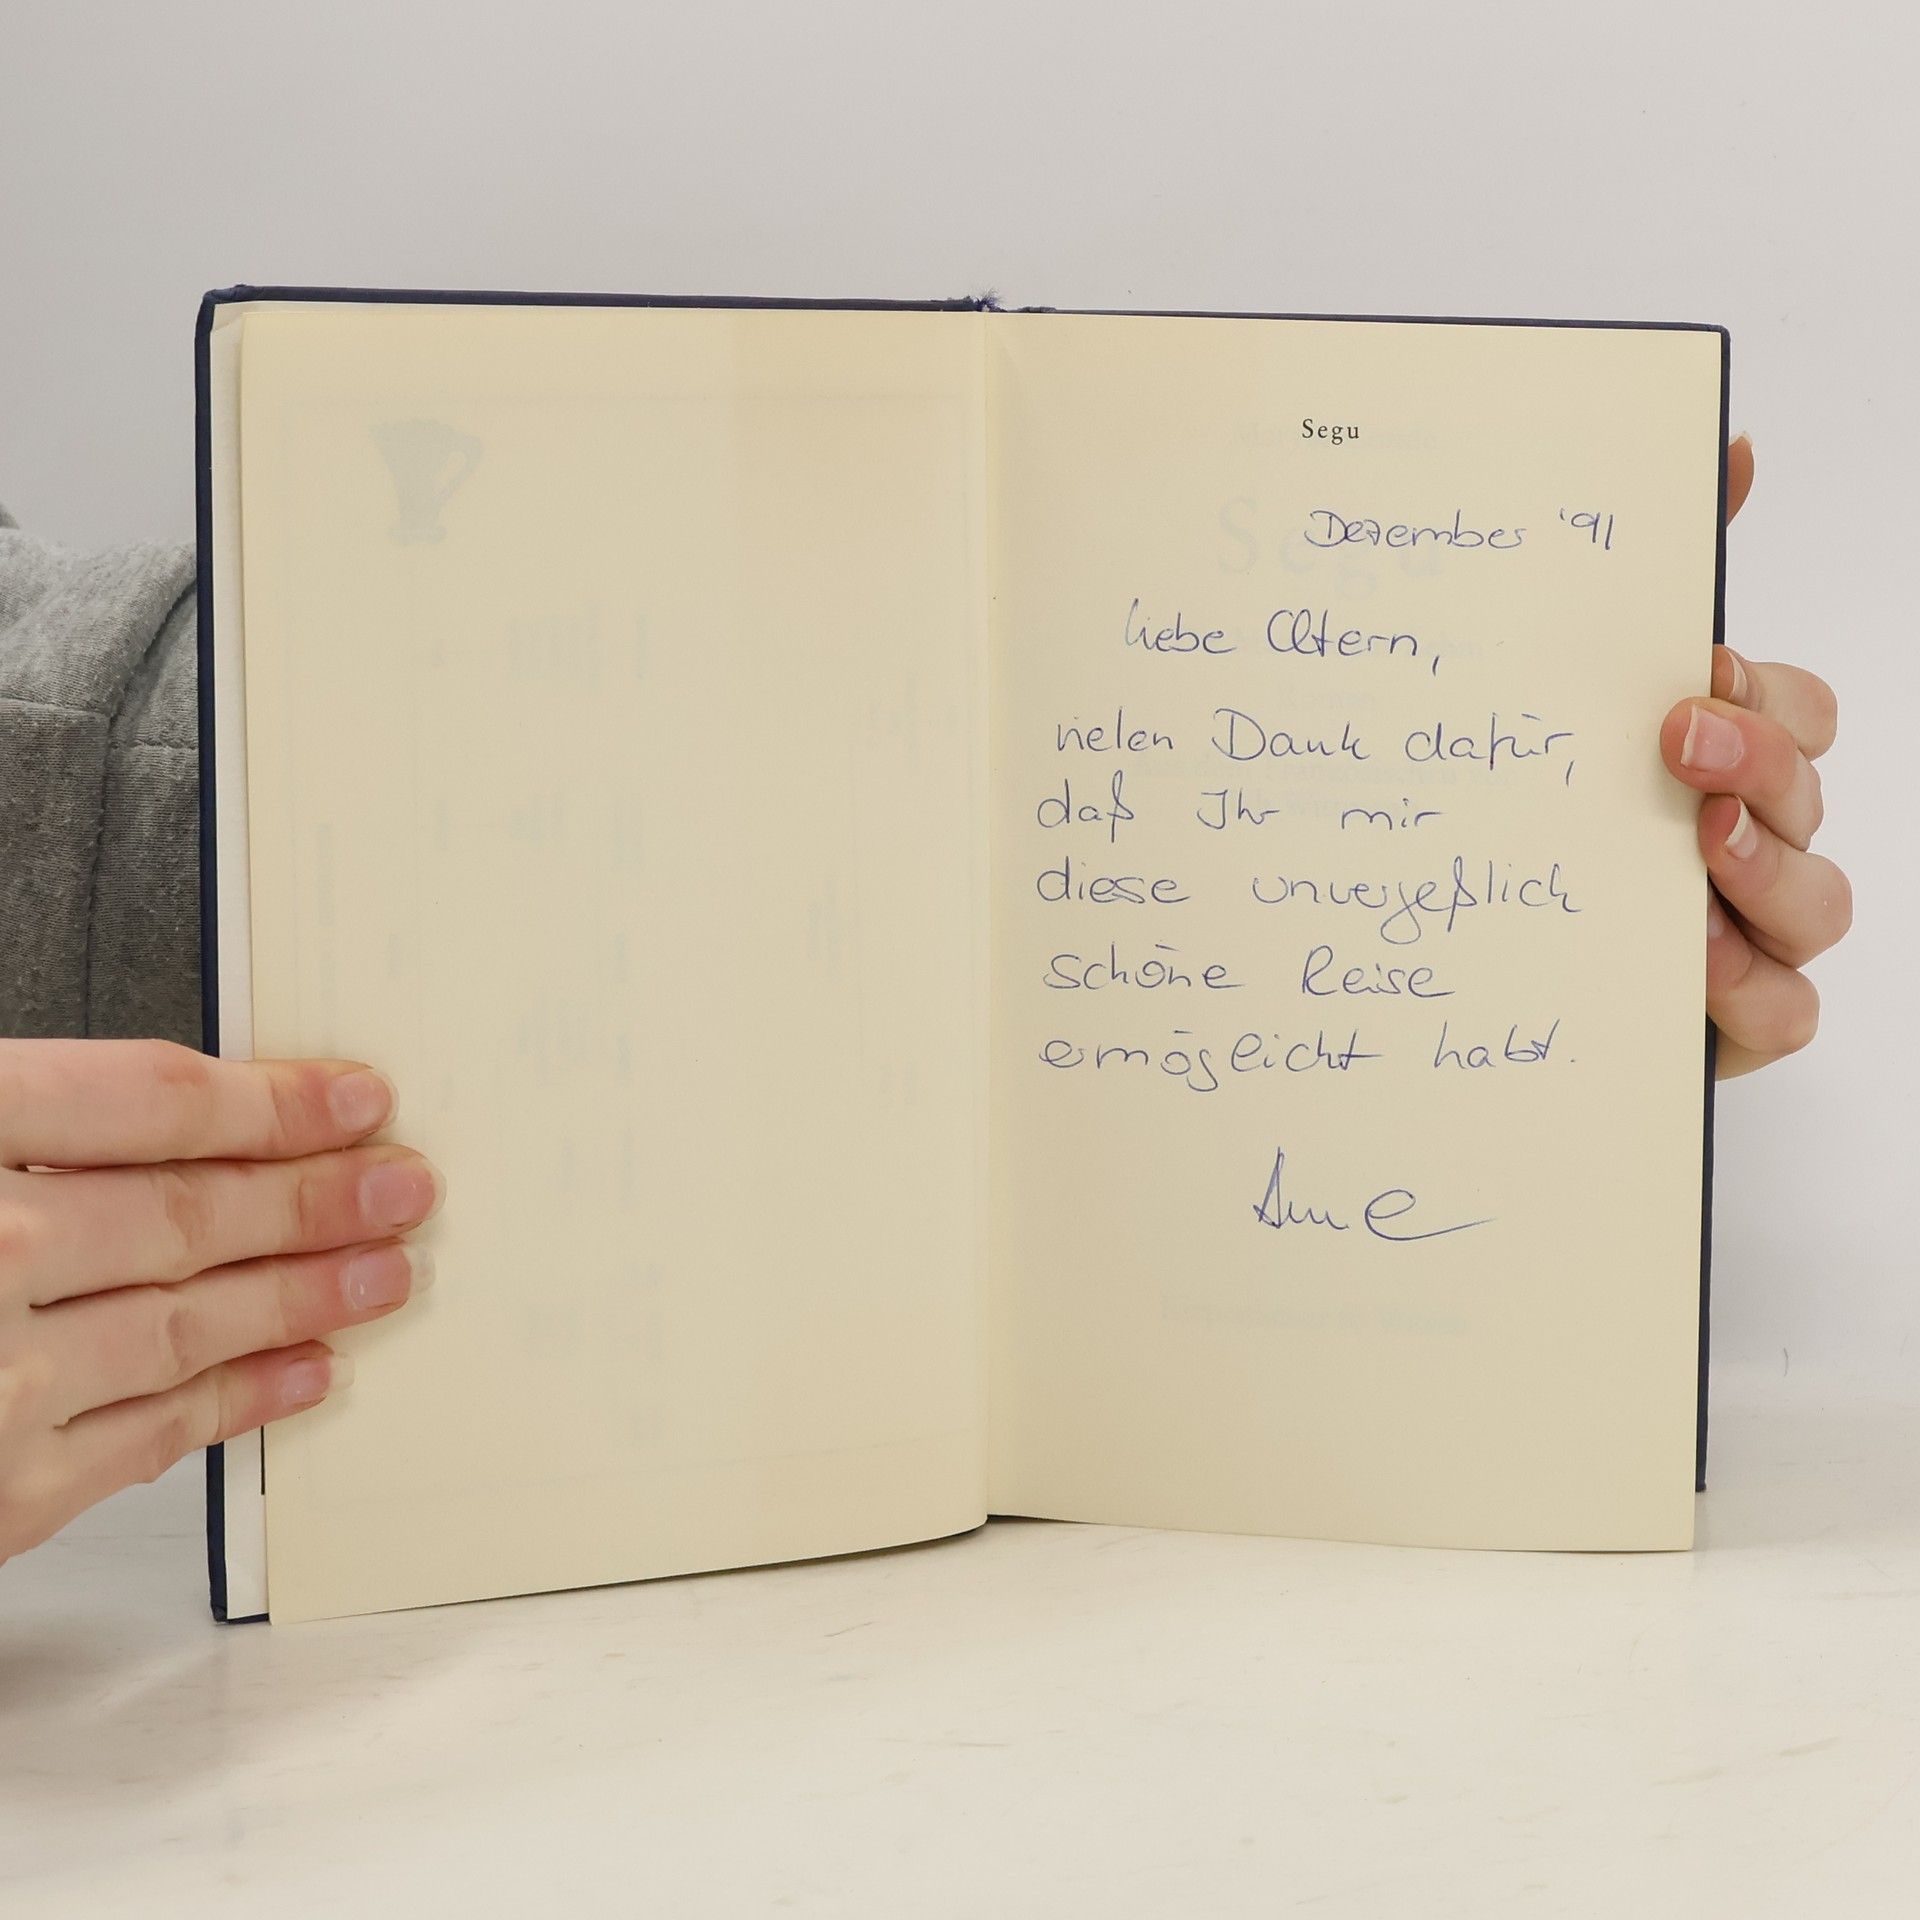 Segu
Dezember '91
liebe Eltern,
vielen Dank dafür,
daß Ihr mir
diese unvergeßlich
schöne Reise
ermöglicht habt.
Anne